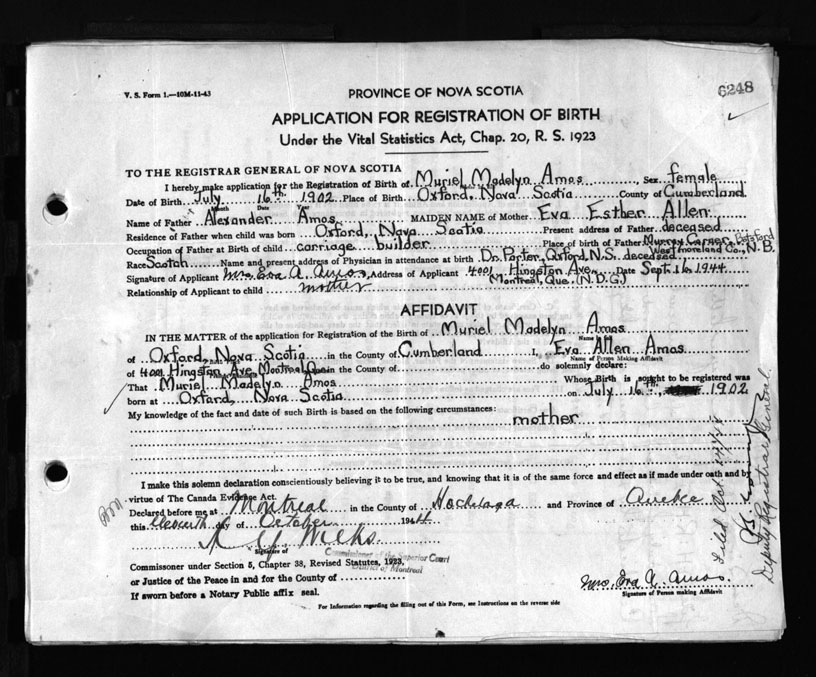 V. S. Form 1.—10M-11-43
6248
PROVINCE OF NOVA SCOTIA
APPLICATION FOR REGISTRATION OF BIRTH
Under the Vital Statistics Act, Chap. 20, R. S. 1923
TO THE REGISTRAR GENERAL OF NOVA SCOTIA
I hereby make application for the Registration of Birth of Muriel Madelyn Amos, Sex female
Date of Birth July 16th 1902 Place of Birth Oxford, Nova Scotia County of Cumberland
Month Date Year
Name of Father Alexander Amos MAIDEN NAME of Mother Eva Esther Allen
Residence of Father when child was born Oxford, Nova Scotia Present address of Father deceased
Occupation of Father at Birth of child carriage builder Place of birth of Father Murray Corner, Botsford
Westmoreland Co., N.B.
Race Scotch Name and present address of Physician in attendance at birth Dr. Porter, Oxford, N.S. deceased
Signature of Applicant Mrs. Eva A. Amos, Address of Applicant 4001 Hingston Ave. Date Sept. 16, 1944
Montreal, Que. (N.D.G.)
Relationship of Applicant to child mother
AFFIDAVIT
IN THE MATTER of the application for Registration of the Birth of Muriel Madelyn Amos
Name
of Oxford, Nova Scotia in the County of Cumberland I, Eva Allen Amos
Name of Person Making Affidavit
of 4001 Hingston Ave, Montreal Que in the County of do solemnly declare:
That Muriel Madelyn Amos Whose Birth is sought to be registered was
born at Oxford, Nova Scotia on July 16th, 1902
My knowledge of the fact and date of such Birth is based on the following circumstances:
mother
I make this solemn declaration conscientiously believing it to be true, and knowing that it is of the same force and effect as if made under oath and by
virtue of The Canada Evidence Act.
Declared before me at Montreal in the County of Hochelaga and Province of Quebec
this eleventh day of October 1944
Signature of
Commissioner of the Superior Court
District of Montreal
Commissioner under Section 5, Chapter 38, Revised Statutes, 1923,
or Justice of the Peace in and for the County of
If sworn before a Notary Public affix seal.
Mrs. Eva A. Amos.
Signature of Person making Affidavit
For Information regarding the filling out of this Form, see Instructions on the reverse side
Filed Oct
Deputy Registrar General